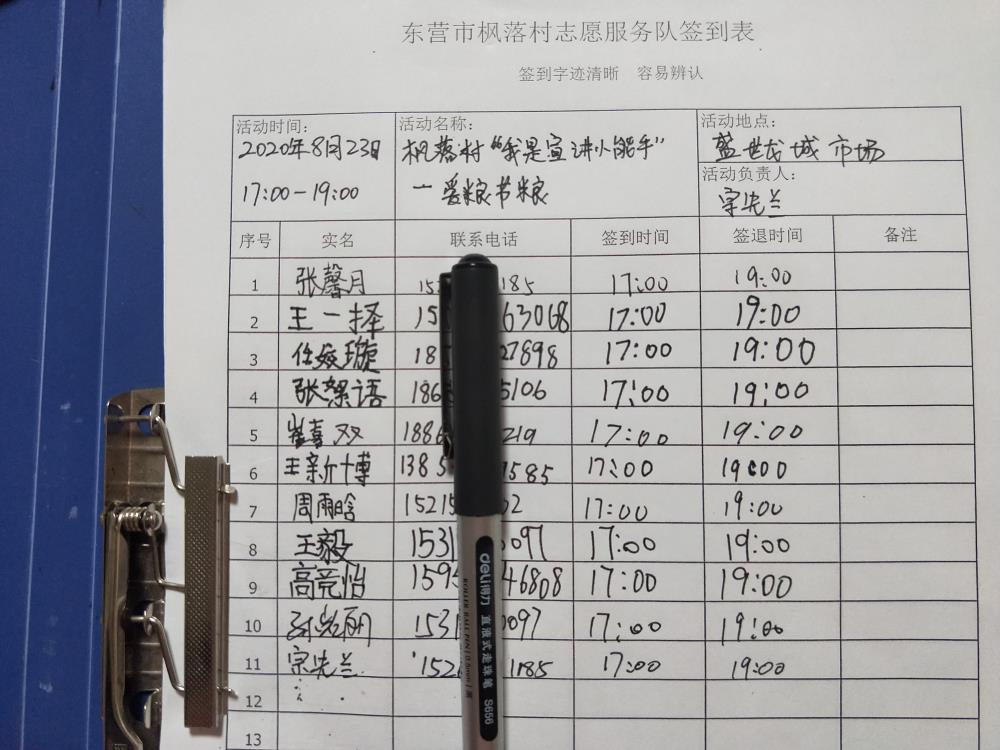 东营市枫落村志愿服务队签到表
签到字迹清晰 容易辨认
活动时间：
2020年8月23日
17:00-19:00
活动名称：
枫落村“我是宣讲小能手”
一爱粮节粮
活动地点：
盛世龙城市场
活动负责人：
宗先兰
序号 实名 联系电话 签到时间 签退时间 备注
1 张馨月 15 185 17:00 19:00
2 王一择 15 63068 17:00 19:00
3 任姿璇 18 27898 17:00 19:00
4 张絮语 186 5106 17:00 19:00
5 崔喜双 1886 219 17:00 19:00
6 王新博 1385 1585 17:00 19:00
7 周雨晗 15215 02 17:00 19:00
8 王毅 1531 0097 17:00 19:00
9 高亮怡 1595 46808 17:00 19:00
10 1531 0097 17:00 19:00
11 宗先兰 152 1185 17:00 19:00
12
13
deli得力 直液式走珠笔 S656
ROLLER BALL PEN 0.5mm